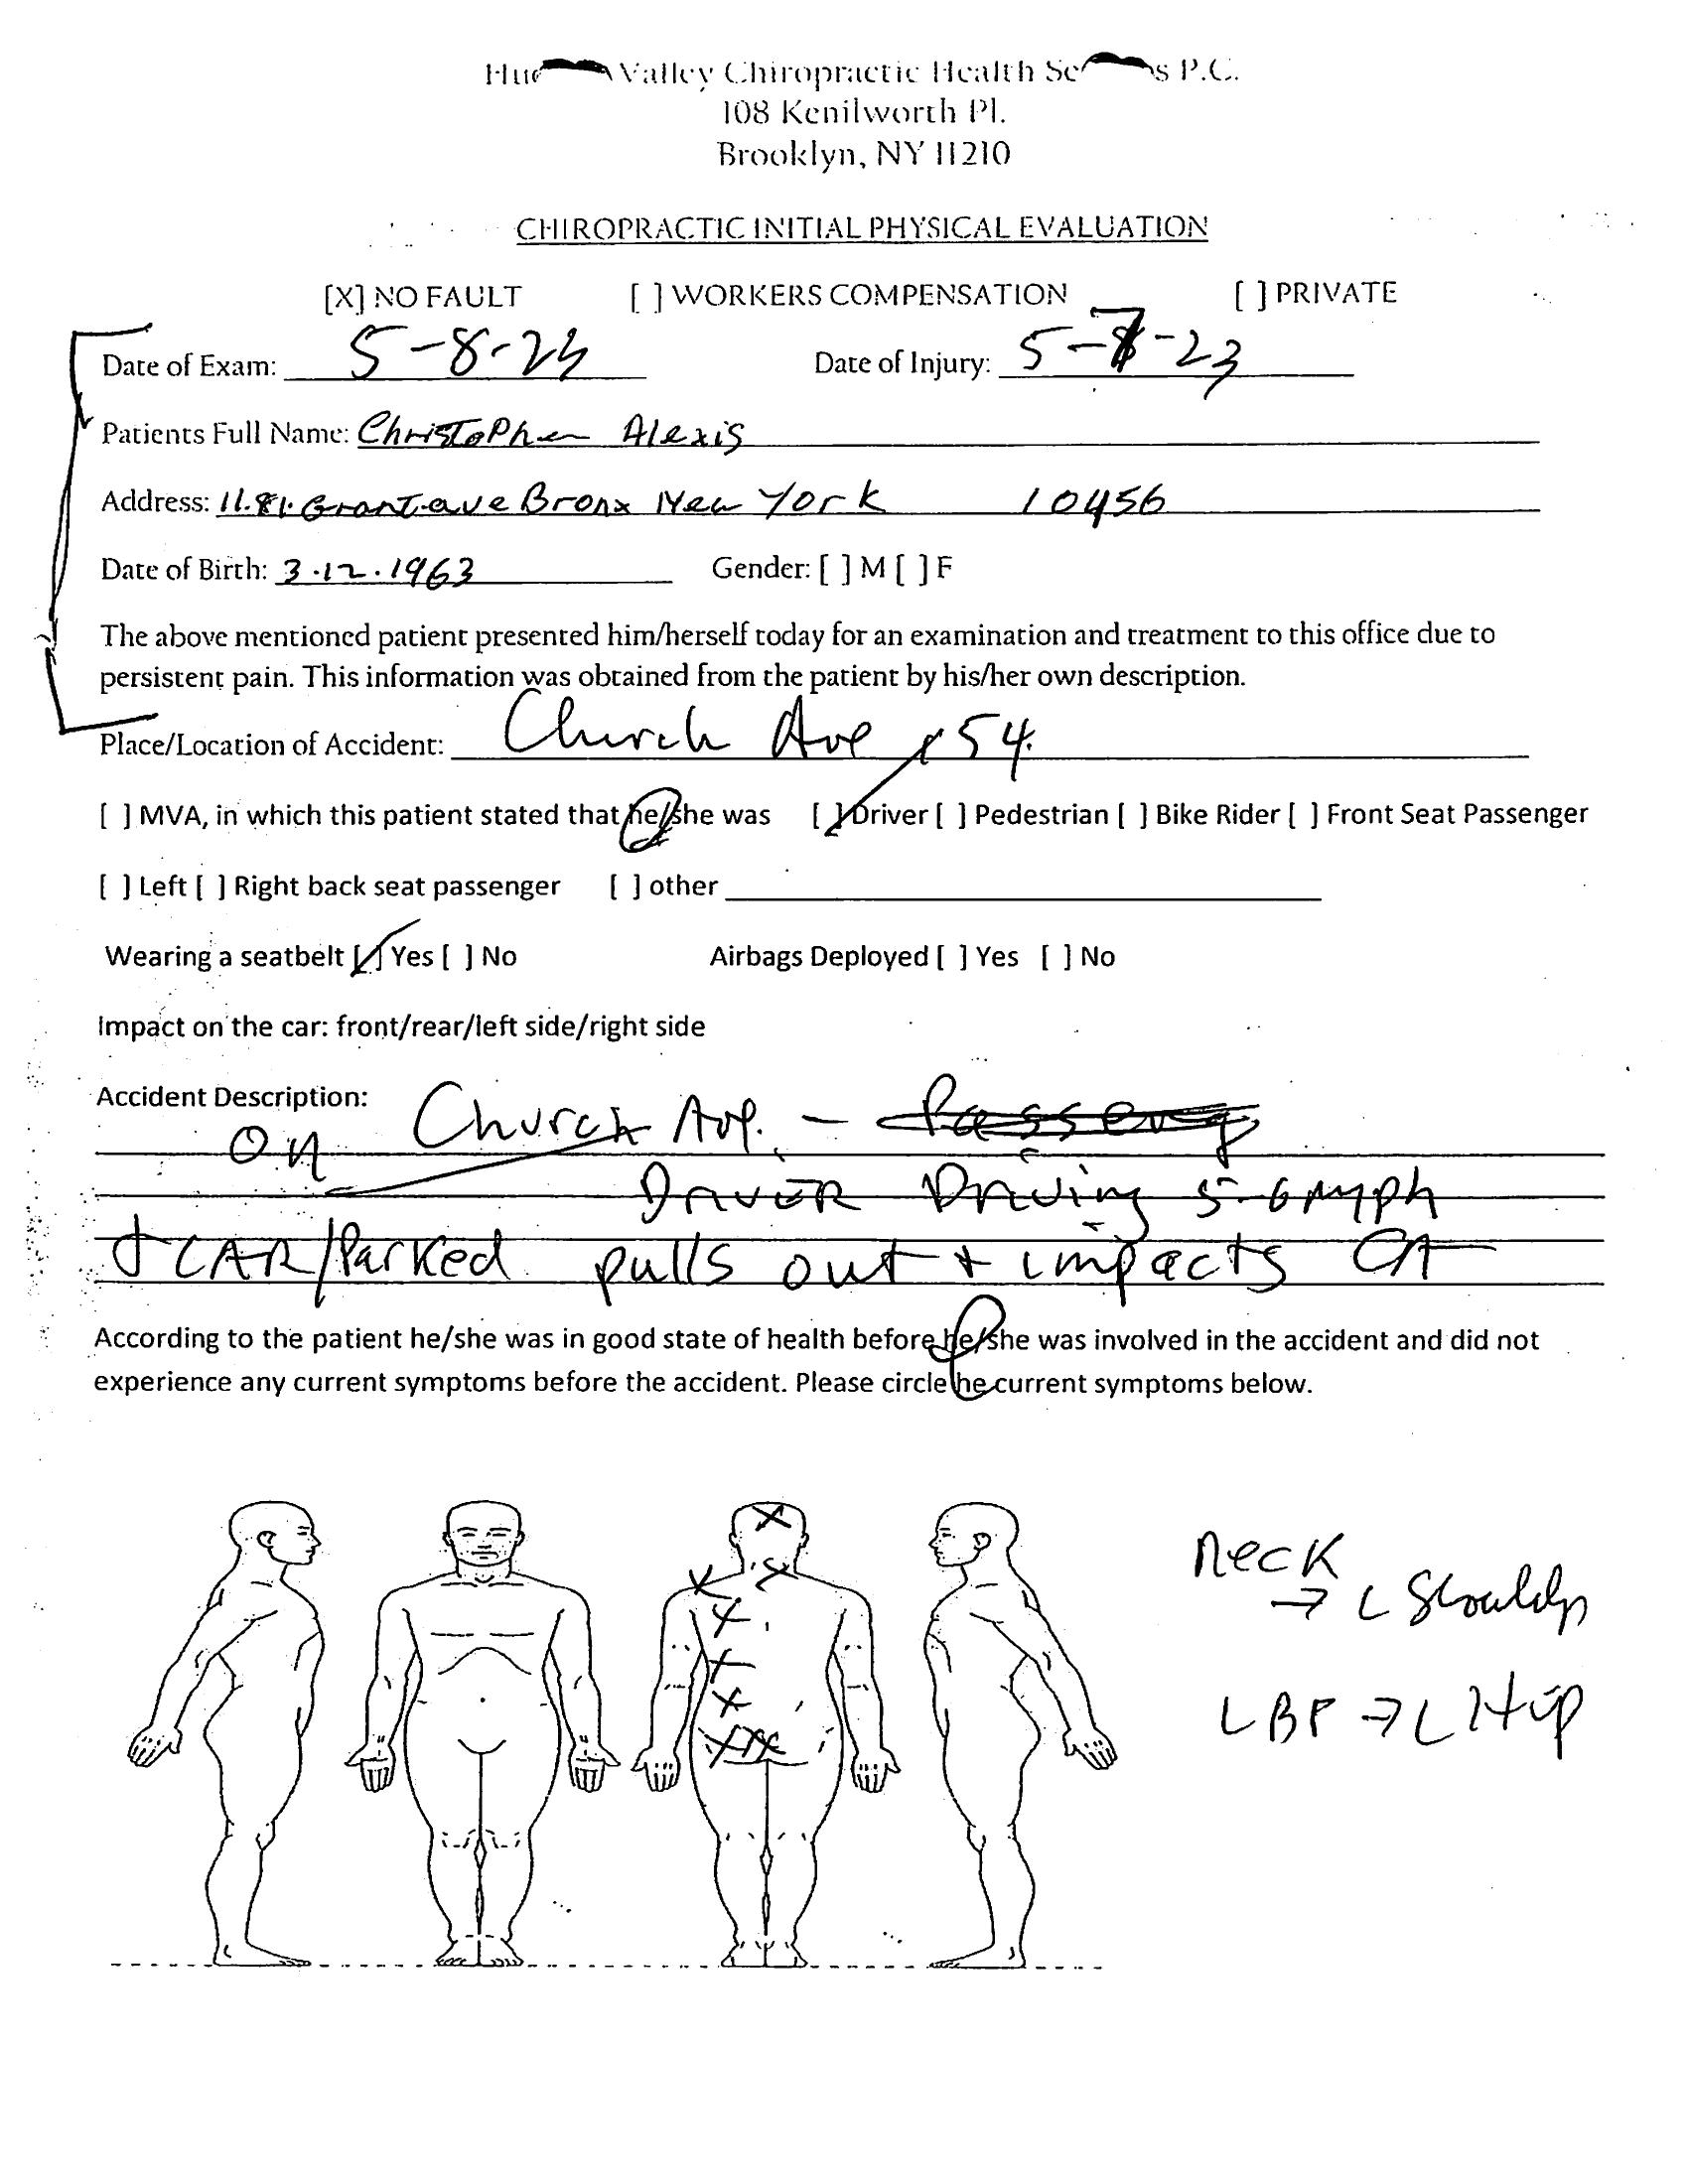 Valley Chiropractic Health P.C.
108 Kenilworth Pl.
Brooklyn, NY 11210
CHIROPRACTIC INITIAL PHYSICAL EVALUATION
[X] NO FAULT [ ] WORKERS COMPENSATION [ ] PRIVATE
Date of Exam: 5-8-23 Date of Injury: 5-7-23
Patients Full Name: Christopher Alexis
Address: 11.81. Grant ave Bronx New York 10456
Date of Birth: 3.12.1963 Gender: [ ] M [ ] F
The above mentioned patient presented him/herself today for an examination and treatment to this office due to
persistent pain. This information was obtained from the patient by his/her own description.
Place/Location of Accident: Church Ave x 54.
[ ] MVA, in which this patient stated that he/she was [✓] Driver [ ] Pedestrian [ ] Bike Rider [ ] Front Seat Passenger
[ ] Left [ ] Right back seat passenger [ ] other
Wearing a seatbelt [✓] Yes [ ] No Airbags Deployed [ ] Yes [ ] No
Impact on the car: front/rear/left side/right side
Accident Description:
On Church Ave. -
Driver Driving 5-6 mph
+ CAR/Parked pulls out + impacts
According to the patient he/she was in good state of health before he/she was involved in the accident and did not
experience any current symptoms before the accident. Please circle he current symptoms below.
Neck
→ L Shoulder
LBP → L Hip